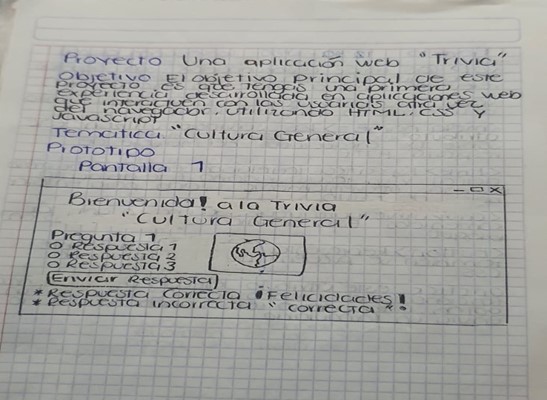 Proyecto Una aplicación web "Trivia"
Objetivo El objetivo principal de este
proyecto es que tengais una primera
experiencia desarrollada en aplicaciones web
que interactuen con los usuarios atra vez
del navegador, utilizando HTML, CSS y
Javascript
Tematica "Cultura General"
Prototipo
Pantalla 1
Bienvenida! a la Trivia
"Cultura General"
Pregunta 1
O Respuesta 1
O Respuesta 2
O Respuesta 3
Enviar Respuesta
* Respuesta Correcta ¡Felicidades!
* Respuesta incorrecta " correcta "!